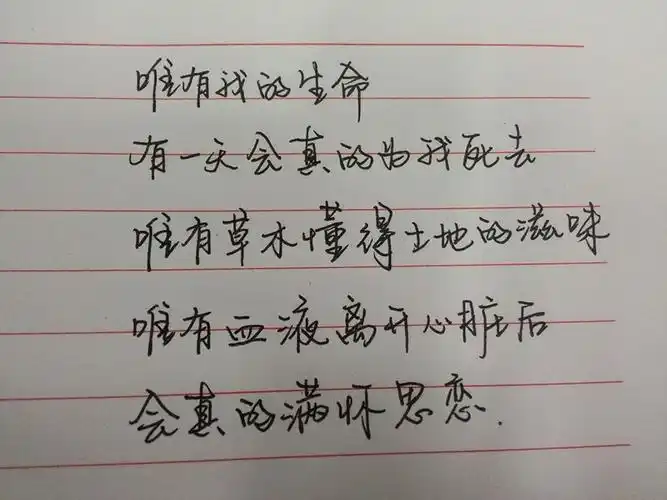 唯有我的生命
有一天会真的为我死去
唯有草木懂得土地的滋味
唯有血液离开心脏后
会真的满怀思恋.